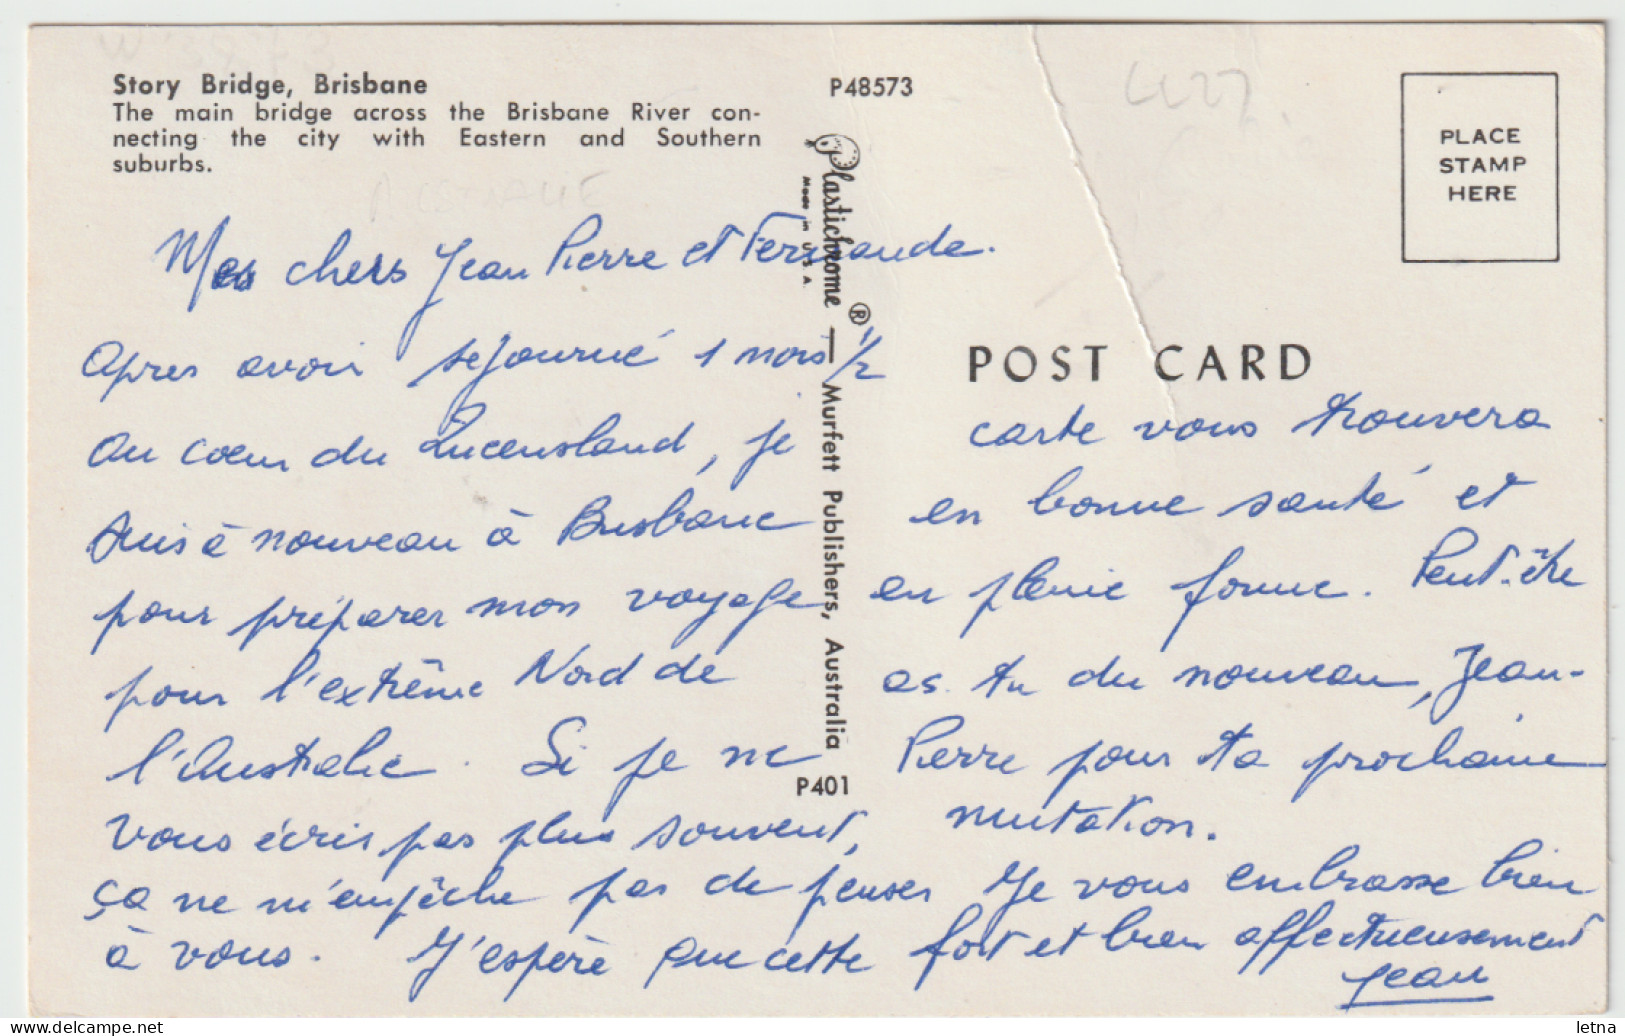 Story Bridge, Brisbane
The main bridge across the Brisbane River con-
necting the city with Eastern and Southern
suburbs.
P48573
PLACE
STAMP
HERE
Plastichrome ® — Murfett Publishers, Australia
Made in U S A
P401
POST CARD
Mes chers Jean Pierre et Fernande.
Apres avoir sejourné 1 mois 1/2
au cœur du Queensland, je
suis à nouveau à Brisbane
pour préparer mon voyage
pour l'extrême Nord de
l'Australie. Si je ne
vous écris pas plus souvent,
ça ne m'empêche pas de penser
à vous. J'espère que cette
carte vous trouvera
en bonne santé et
en pleine forme. Peut-être
as tu du nouveau, Jean-
Pierre pour ta prochaine
mutation.
Je vous embrasse bien
fort et bien affectueusement
Jean
letna